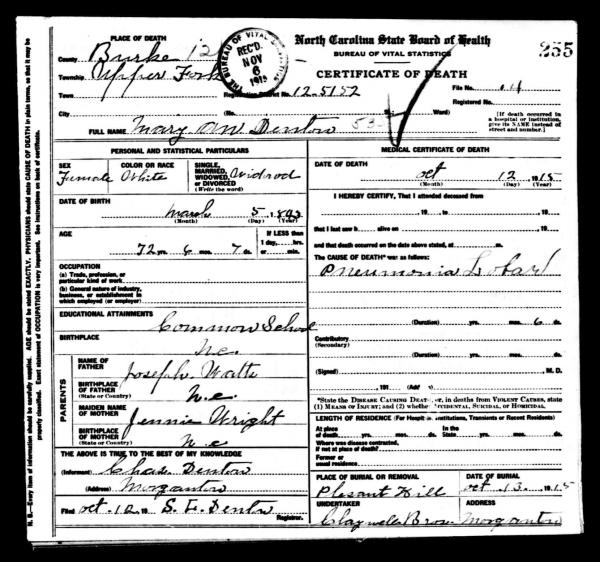 North Carolina State Board of Health
BUREAU OF VITAL STATISTICS
CERTIFICATE OF DEATH
255
THE BUREAU OF VITAL STATISTICS
REC'D.
NOV
6
1915
PLACE OF DEATH
County Burke 12
Township Upper Fork
Town
Registration District No. 12-5152
File No. 14
Registered No.
City (No. St.; Ward)
[If death occurred in a hospital or institution, give its NAME instead of street and number.]
FULL NAME Mary Ann Denton 53-
PERSONAL AND STATISTICAL PARTICULARS
SEX Fumale
COLOR OR RACE White
SINGLE, MARRIED, WIDOWED, OR DIVORCED (Write the word) Widood
DATE OF BIRTH
March 5, 1843
(Month) (Day) (Year)
AGE
72 yrs. 6 mos. 7 ds.
If LESS than 1 day,....hrs. or....min.
OCCUPATION
(a) Trade, profession, or particular kind of work
(b) General nature of industry, business, or establishment in which employed (or employer)
EDUCATIONAL ATTAINMENTS
Common School
BIRTHPLACE
N.C.
PARENTS
NAME OF FATHER Joseph Walts
BIRTHPLACE OF FATHER (State or Country) N.C.
MAIDEN NAME OF MOTHER Jennie Wright
BIRTHPLACE OF MOTHER (State or Country) N C
THE ABOVE IS TRUE TO THE BEST OF MY KNOWLEDGE
(Informant) Chas Denton
(Address) Morganton
Filed oct. 12, 19 S. E. Denton
Registrar.
MEDICAL CERTIFICATE OF DEATH
DATE OF DEATH
oct 12 1915
(Month) (Day) (Year)
I HEREBY CERTIFY, That I attended deceased from
, 19 , to , 19
that I last saw h alive on , 19
and that death occurred on the date above stated, at m.
The CAUSE OF DEATH* was as follows:
Pneumonia Lobar
(Duration) yrs. mos. 6 ds.
Contributory
(Secondary)
(Duration) yrs. mos. ds.
(Signed) , M.D.
, 191 (Address)
*State the DISEASE CAUSING DEATH, or, in deaths from VIOLENT CAUSES, state
(1) MEANS OF INJURY; and (2) whether ACCIDENTAL, SUICIDAL, or HOMICIDAL.
LENGTH OF RESIDENCE (For Hospitals, Institutions, Transients or Recent Residents)
At place of death yrs. mos. ds. In the State yrs. mos. ds.
Where was disease contracted, if not at place of death?
Former or usual residence
PLACE OF BURIAL OR REMOVAL
Plesant Hill
DATE OF BURIAL
oct .13. 1915
UNDERTAKER
Claywell Bros
ADDRESS
Morganton
N. B.—Every item of information should be carefully supplied. AGE should be stated EXACTLY. PHYSICIANS should state CAUSE OF DEATH in plain terms, so that it may be
properly classified. Exact statement of OCCUPATION is very important. See instructions on back of certificate.